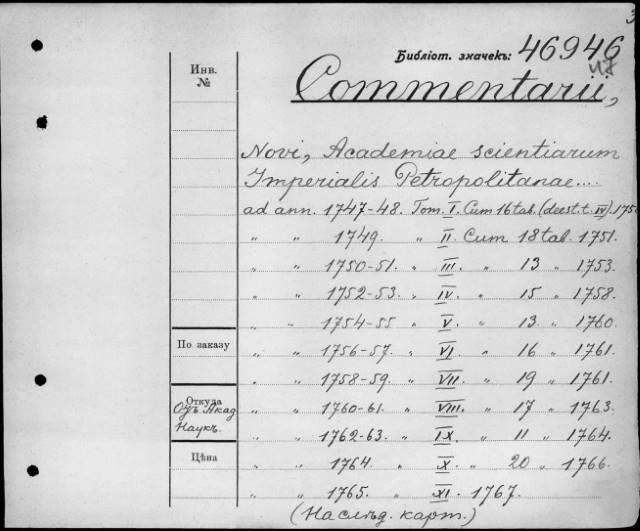 3
Библіот. значекъ: 46946
47
Инв.
№
Commentarii,
Novi, Academiae scientiarum
Imperialis Petropolitanae....
ad ann. 1747-48. Tom. I. Cum 16 tab. (deest. t. IV). 175
„ „ 1749. „ II. Cum 18 tab. 1751.
„ „ 1750-51. „ III. „ 13 „ 1753.
„ „ 1752-53. „ IV. „ 15 „ 1758.
„ „ 1754-55 „ V. „ 13. „ 1760.
По заказу
„ „ 1756-57. „ VI. „ 16 „ 1761.
„ „ 1758-59. „ VII. „ 19 „ 1761.
Откуда
Отъ Акад
Наукъ.
„ „ 1760-61. „ VIII. „ 17 „ 1763.
„ „ 1762-63. „ IX. „ 11 „ 1764.
Цѣна
„ „ 1764. „ X. „ 20 „ 1766.
„ „ 1765. „ XI. 1767.
(Наслѣд. карт.)